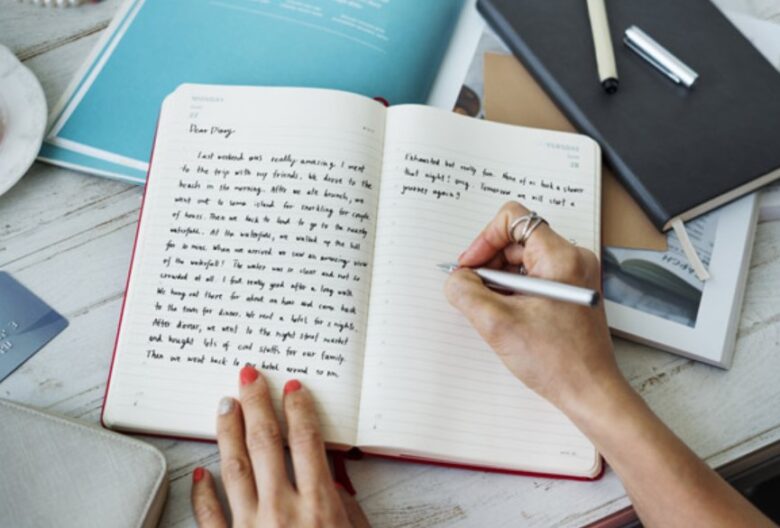 MONDAY
27
Dear Diary,
Last weekend was really amazing. I went
to the trip with my friends. We drove to the
beach in the morning. After we ate brunch, we
went out to some island for snorkling for couple
of hours. Then we back to land to go to the nearby
waterfalls. At the waterfalls, we walked up the hill
for 20 mins. When we arrived we saw an amazing view
of the waterfall! The water was so clear and not so
crowded at all. I feel really good after a long walk.
We hang out there for about an hour and came back
to the town for dinner. We rent a hotel for 2 nights.
After dinner, we went to the night street market
and bought lots of cool stuffs for our family.
Then we went back to hotel around 10
TUESDAY
28
Exhausted but really fun. None of us took a shower
that night! omg. Tomorrow we will start a
journey again!